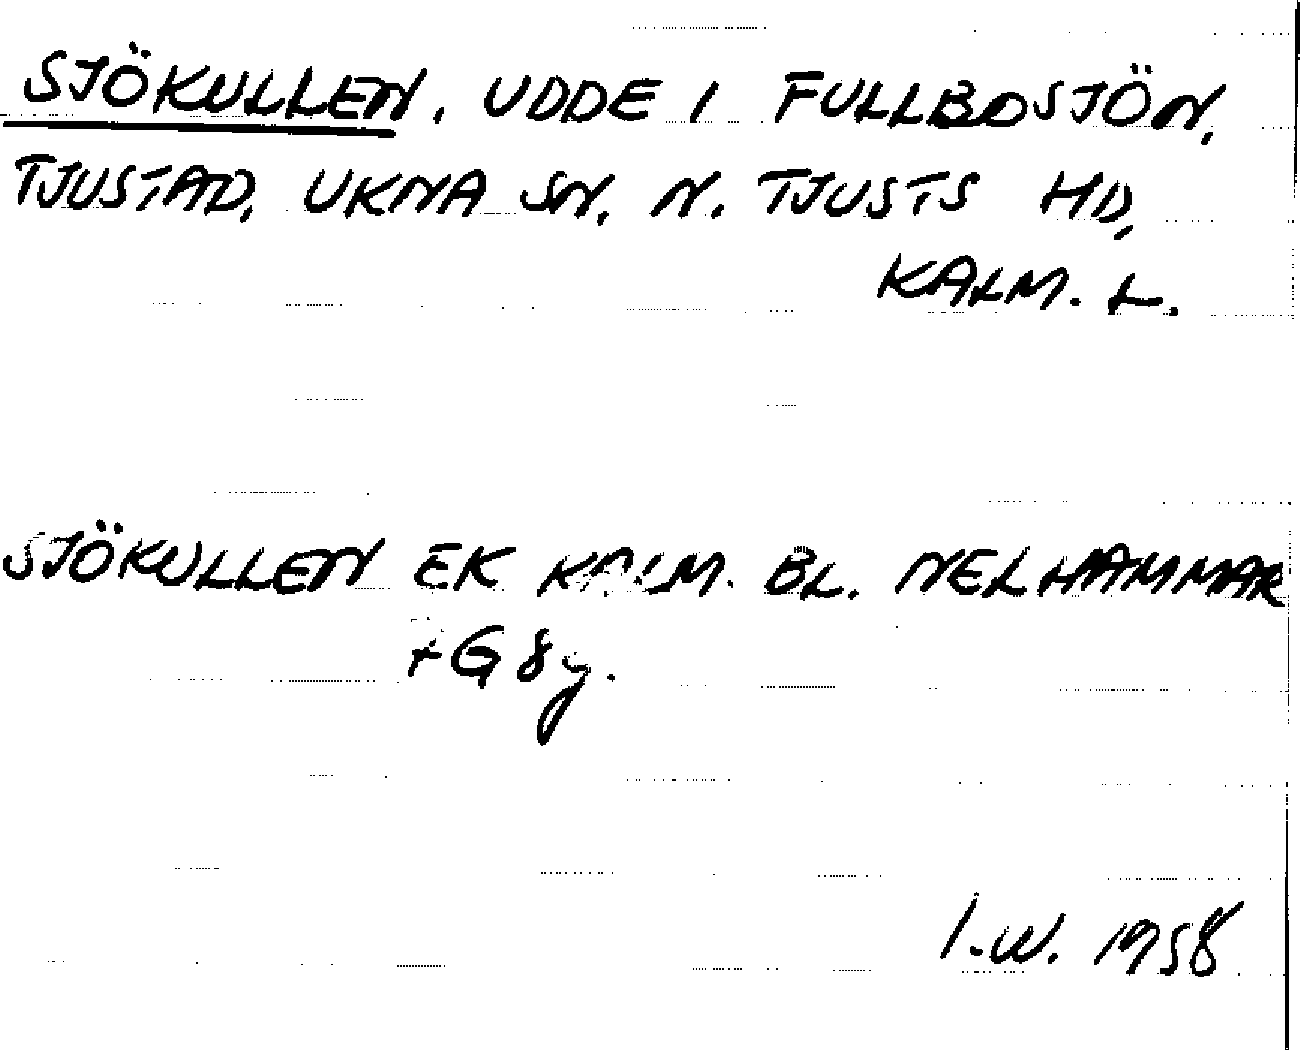 SJÖKULLEN, UDDE I FULLBOSJÖN,
TJUSTAD, UKNA SN. N. TJUSTS HD,
KALM. L.
SJÖKULLEN EK KALM. BL. NELHAMMAR
+G8y.
I.W. 1958